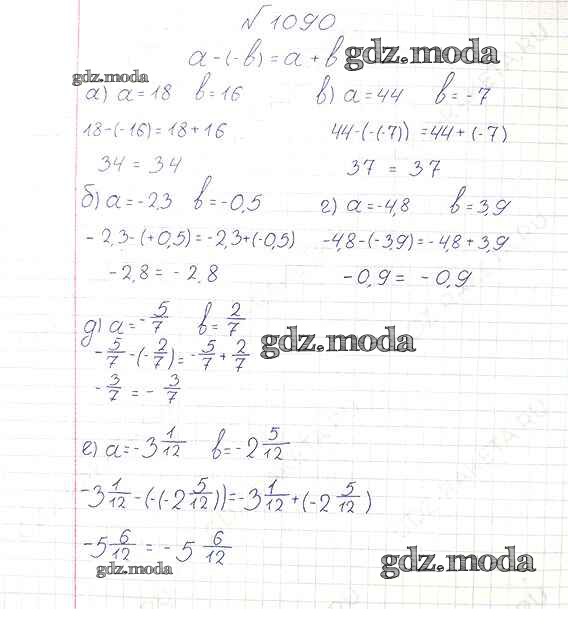 № 1090
a - (-b) = a + b
gdz.moda
gdz.moda
а) a = 18 b = 16
18 - (-16) = 18 + 16
34 = 34
в) a = 44 b = -7
44 - (-(-7)) = 44 + (-7)
37 = 37
б) a = -2,3 b = -0,5
-2,3 - (+0,5) = -2,3 + (-0,5)
-2,8 = -2,8
г) a = -4,8 b = 3,9
-4,8 - (-3,9) = -4,8 + 3,9
-0,9 = -0,9
д) a = -5/7 b = 2/7
gdz.moda
-5/7 - (-2/7) = -5/7 + 2/7
-3/7 = -3/7
е) a = -3 1/12 b = -2 5/12
-3 1/12 - (-(-2 5/12)) = -3 1/12 + (-2 5/12)
-5 6/12 = -5 6/12
gdz.moda
gdz.moda